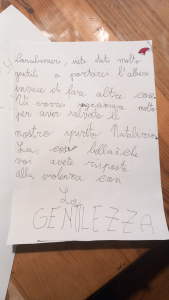 Carabinieri, siete stati molto
gentili a portarci l'albero
invece di fare altre cose.
Vi vorrei ringraziare molto
per aver salvato il
nostro spirito Natalizio.
La cosa bella è che
voi avete risposto
alla violenza con
La
GENTILEZZA